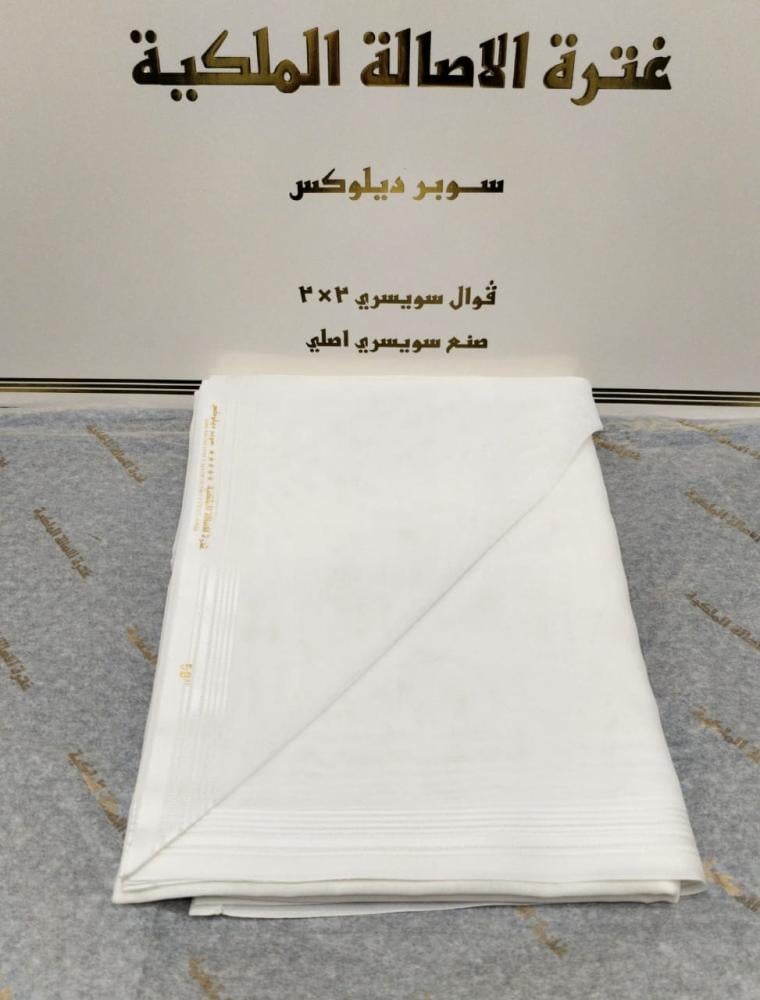 غترة الاصالة الملكية
سوبر ديلوكس
ڤوال سويسري ٢×٢
صنع سويسري اصلي
غترة الاصالة الملكية ★★★★★ سوبر ديلوكس
58"
غترة الاصالة الملكية
غترة الاصالة الملكية